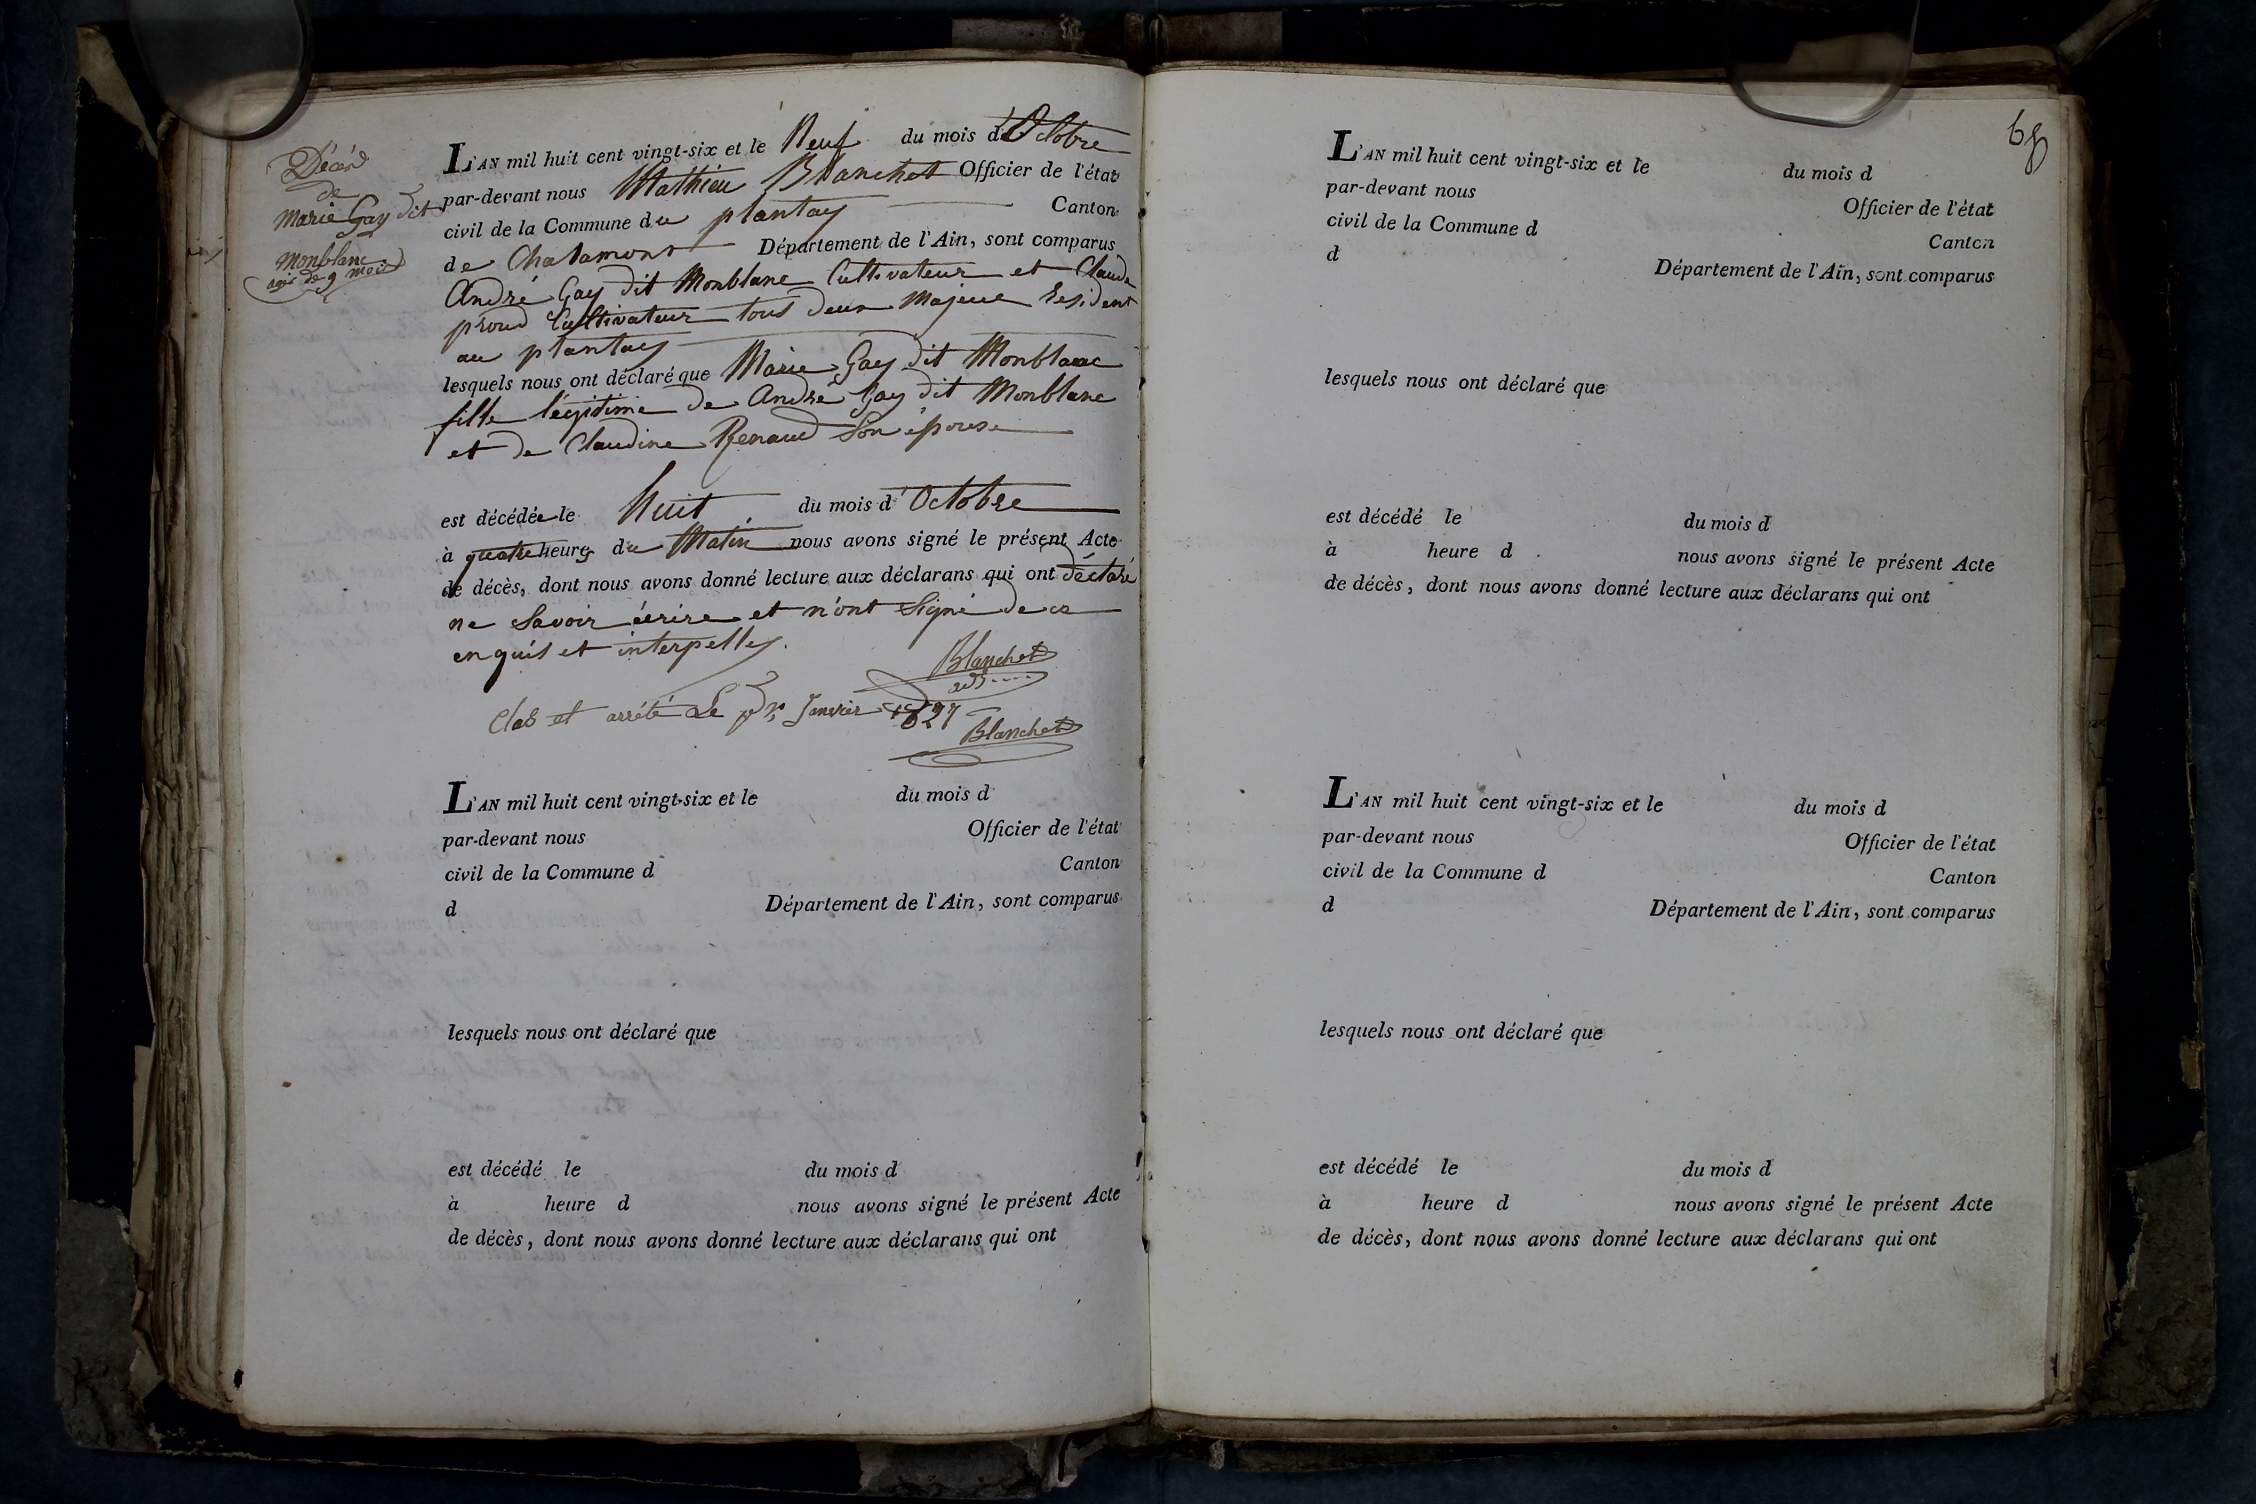 Décès
de
Marie Gay dit
Monblanc
agée de 9 mois
L'AN mil huit cent vingt-six et le Neuf du mois d'Octobre
par-devant nous Mathieu Blanchet Officier de l'état
civil de la Commune du plantay Canton
de Chalamont Département de l'Ain, sont comparus
André Gay dit Monblanc Cultivateur et Claude
proud Cultivateur tous deux Majeur Resident
au plantay
lesquels nous ont déclaré que Marie Gay dit Monblanc
fille légitime de André Gay dit Monblanc
et de Claudine Renaud Son épouse
est décédée le huit du mois d'Octobre
à quatre heures du Matin nous avons signé le présent Acte
de décès, dont nous avons donné lecture aux déclarans qui ont déclaré
ne Savoir écrire et n'ont Signé de ce
enquis et interpellés.
Blanchet
adj
Clos et arrété Le pr. Janvier 1827
Blanchet
L'AN mil huit cent vingt-six et le du mois d
par-devant nous Officier de l'état
civil de la Commune d Canton
d Département de l'Ain, sont comparus
lesquels nous ont déclaré que
est décédé le du mois d
à heure d nous avons signé le présent Acte
de décès, dont nous avons donné lecture aux déclarans qui ont
68
L'AN mil huit cent vingt-six et le du mois d
par-devant nous Officier de l'état
civil de la Commune d Canton
d Département de l'Ain, sont comparus
lesquels nous ont déclaré que
est décédé le du mois d
à heure d nous avons signé le présent Acte
de décès, dont nous avons donné lecture aux déclarans qui ont
L'AN mil huit cent vingt-six et le du mois d
par-devant nous Officier de l'état
civil de la Commune d Canton
d Département de l'Ain, sont comparus
lesquels nous ont déclaré que
est décédé le du mois d
à heure d nous avons signé le présent Acte
de décès, dont nous avons donné lecture aux déclarans qui ont